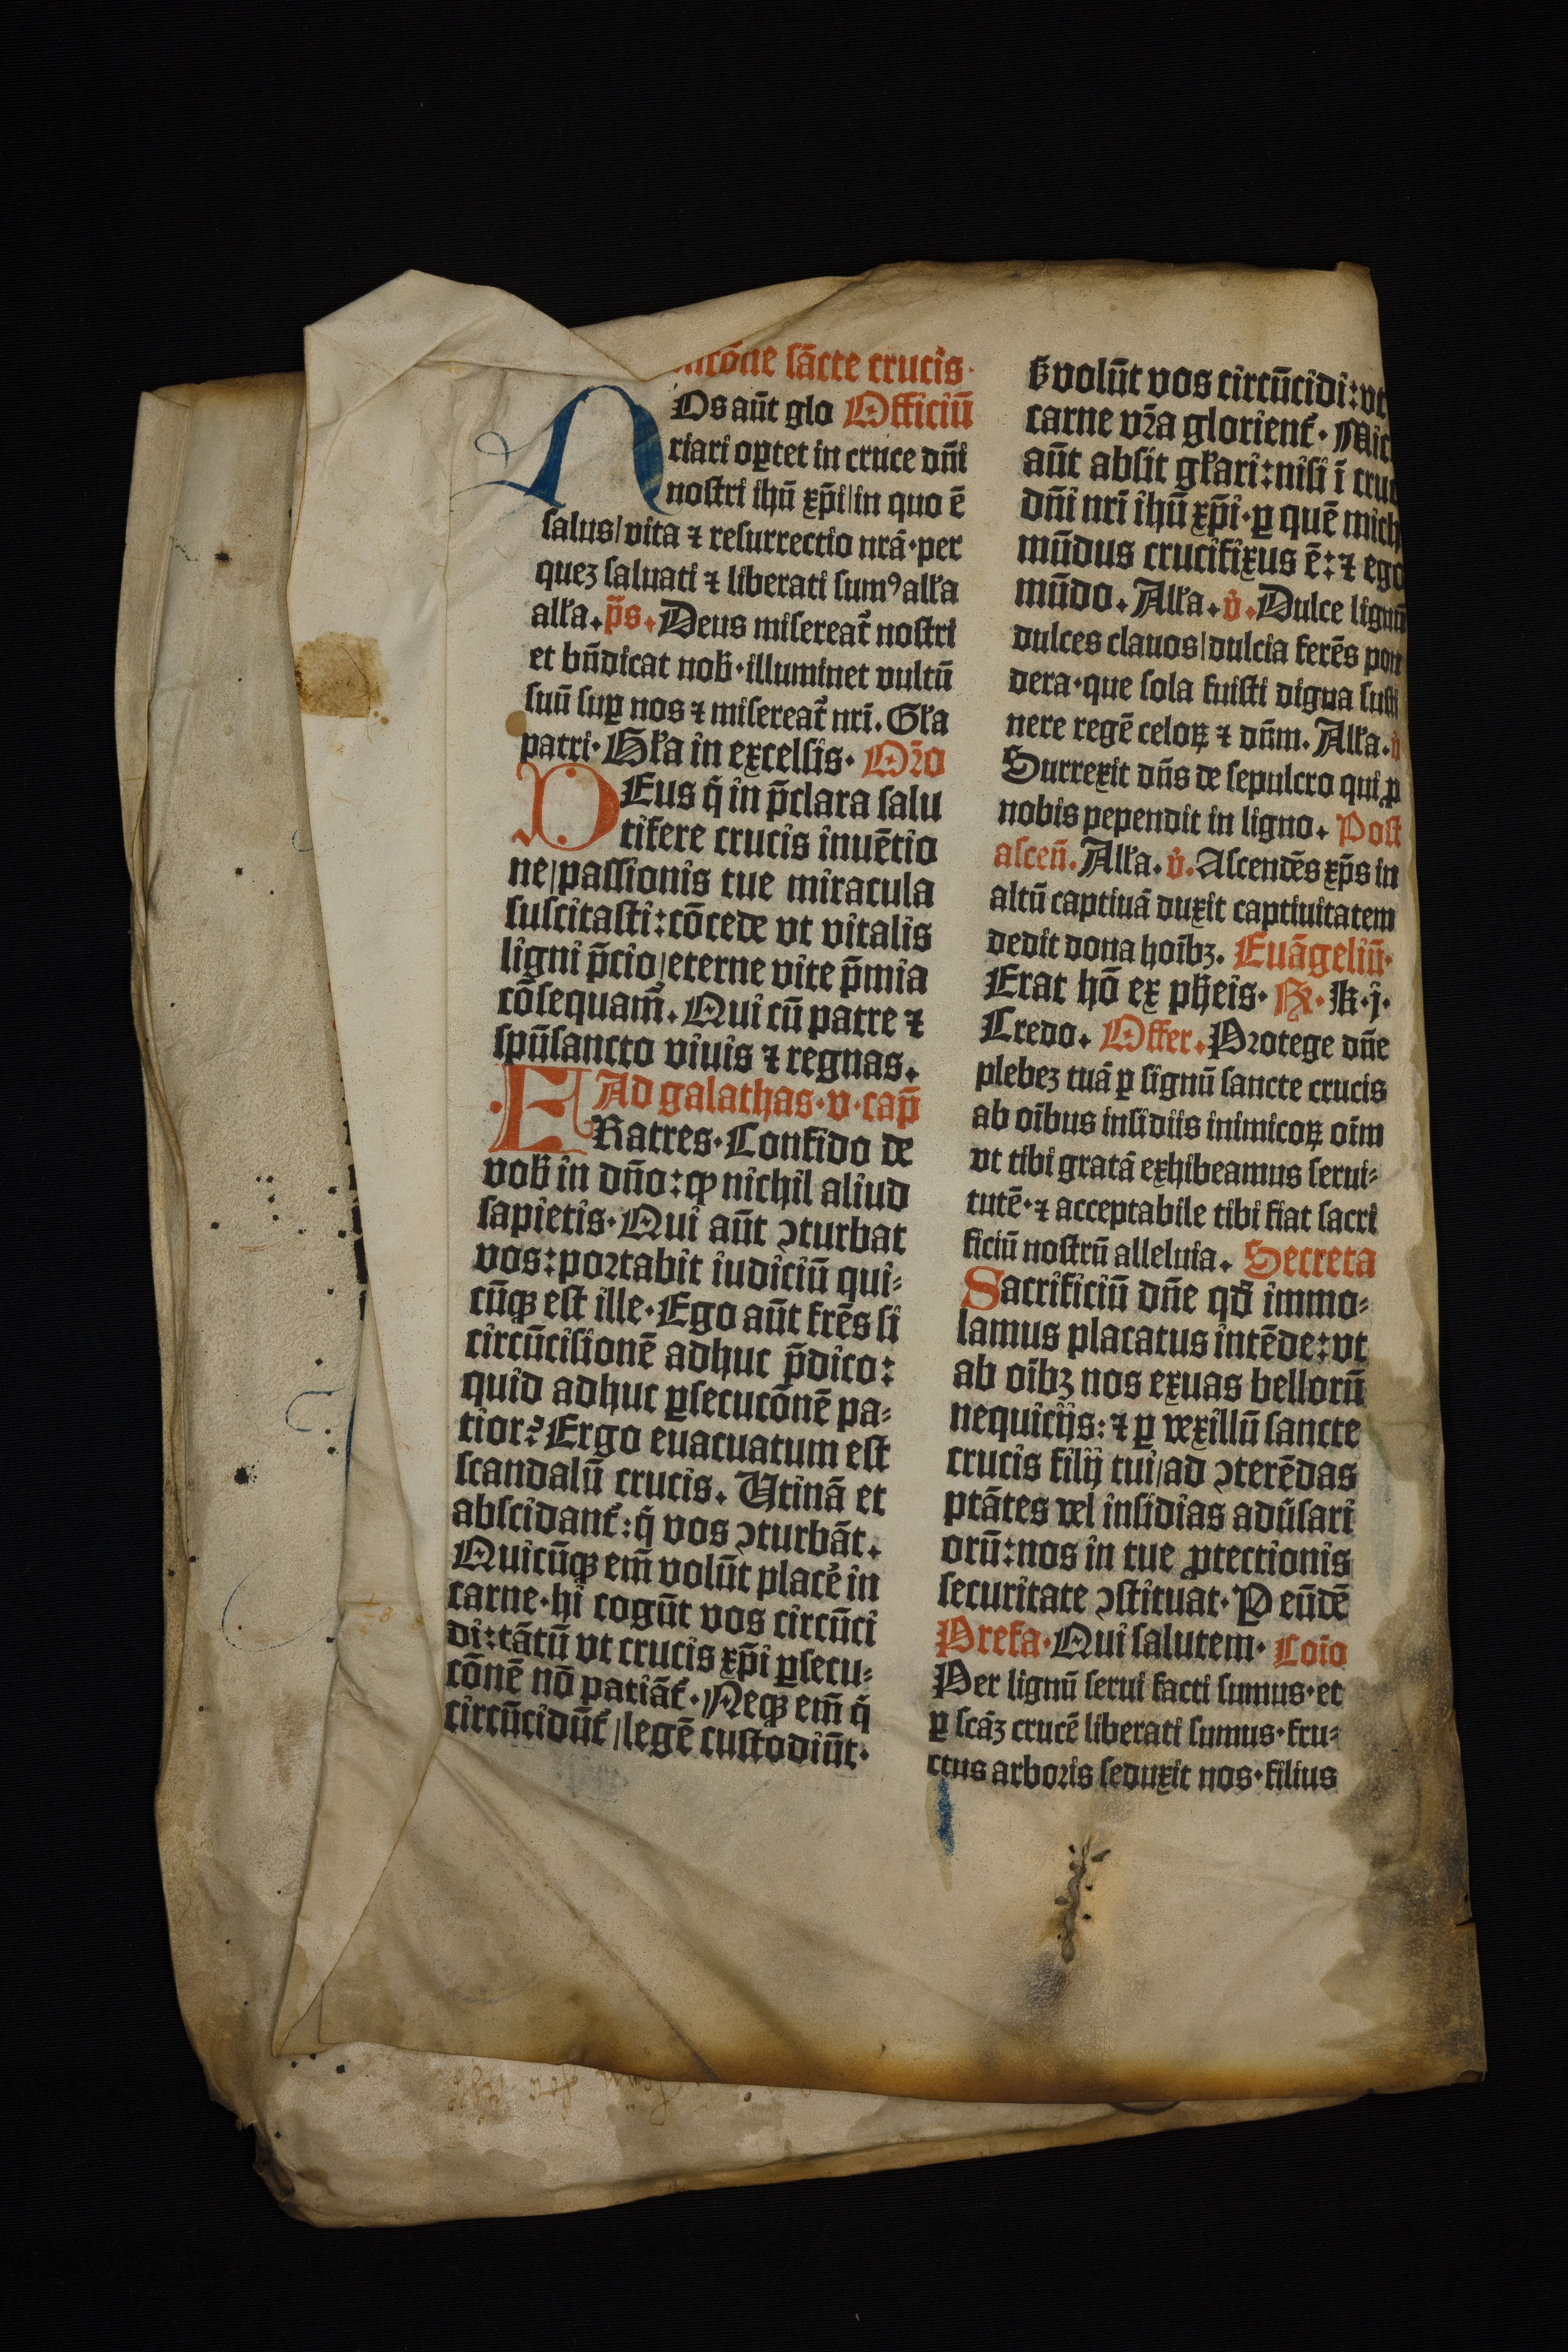 sācte crucis·
NOs aūt glo Officiū
riari oꝑtet in cruce dn̄i
nostri ihū xp̄i/in quo ē
salus/vita ⁊ resurrectio nrā·per
quez saluati ⁊ liberati sumꝰ alľa
alľa. p̄s. Deus misereat᷑ nostri
et bn̄dicat nob̄·illuminet vultū
suū suꝑ nos ⁊ misereat᷑ nrī. Gľa
patri· Gľa in excelsis· Oꝛo
DEus q̄ in p̄clara salu
tifere crucis inuētio
ne/passionis tue miracula
suscitasti:cōcede vt vitalis
ligni p̄cio/eterne vite p̄mia
cōsequam̄. Qui cū patre ⁊
spūsancto viuis ⁊ regnas.
Ad galathas·v·cap̄
FRatres·Confido de
vob̄ in dn̄o:ꝙ nichil aliud
sapietis·Qui aūt ↄturbat
vos:poꝛtabit iudiciū qui⸗
cūqꝫ est ille·Ego aūt frēs si
circūcisionē adhuc p̄dico:
quid adhuc ꝑsecucōnē pa⸗
tior? Ergo euacuatum est
scandalū crucis. Utinā et
abscidant᷑:q̄ vos ↄturbāt.
Quicūqꝫ em̄ volūt placē in
carne·hi cogūt vos circūci
di:tātū vt crucis xp̄i ꝑsecu⸗
cōnē nō patiāt᷑·Neqꝫ em̄ q̄
circūcidūt᷑/legē custodiūt·
s̄volūt vos circūcidi:vt
carne vꝛ̄a glorient᷑·Mic
aūt absit gľari:nisi ī cruc
dn̄i nrī ihū xp̄i·ꝑ quē mich
mūdus crucifixus ē:⁊ ego
mūdo. Alľa. v̇. Dulce lignū
dulces clauos/dulcia ferēs pon
dera·que sola fuisti digna susti
nere regē celoꝝ ⁊ dn̄m. Alľa. v̇
Surrexit dn̄s de sepulcro qui ꝓ
nobis pependit in ligno. Post
asceñ. Alľa. v̇. Ascendēs xp̄s in
altū captiuā duxit captiuitatem
dedit dona hoībꝫ. Euāgeliū·
Erat hō ex ph̄eis· Rͣ· k·j·
Credo. Offer. Pꝛotege dn̄e
plebez tuā ꝑ signū sancte crucis
ab oībus insidiis inimicoꝝ oīm
vt tibi gratā exhibeamus serui⸗
tutē·⁊ acceptabile tibi fiat sacri
ficiū nostrū alleluia. Secreta
Sacrificiū dn̄e qd̄ immo⸗
lamus placatus intēde:vt
ab oībꝫ nos exuas bellorū
nequicijs:⁊ ꝑ vexillū sancte
crucis filij tui/ad ↄterēdas
ptātes vel insidias adūsari
orū:nos in tue ꝓtectionis
securitate ↄstituat·P eūdē
Prefa·Qui salutem· Coīo
Per lignū serui facti sumus·et
ꝑ scāz crucē liberati sumus·fru⸗
ctus arboꝛis seduxit nos·filius